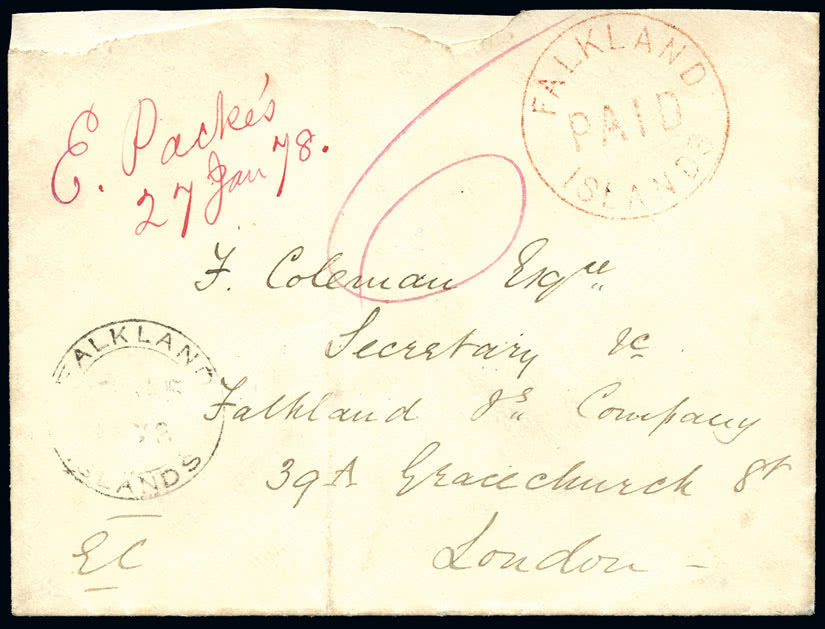 FALKLAND
PAID
ISLANDS
E. Packe's
27 Jan 78.
6
F. Coleman Esqre
Secretary &c
Falkland Is. Company
39A Gracechurch St
London
FALKLAND
ISLANDS
EC